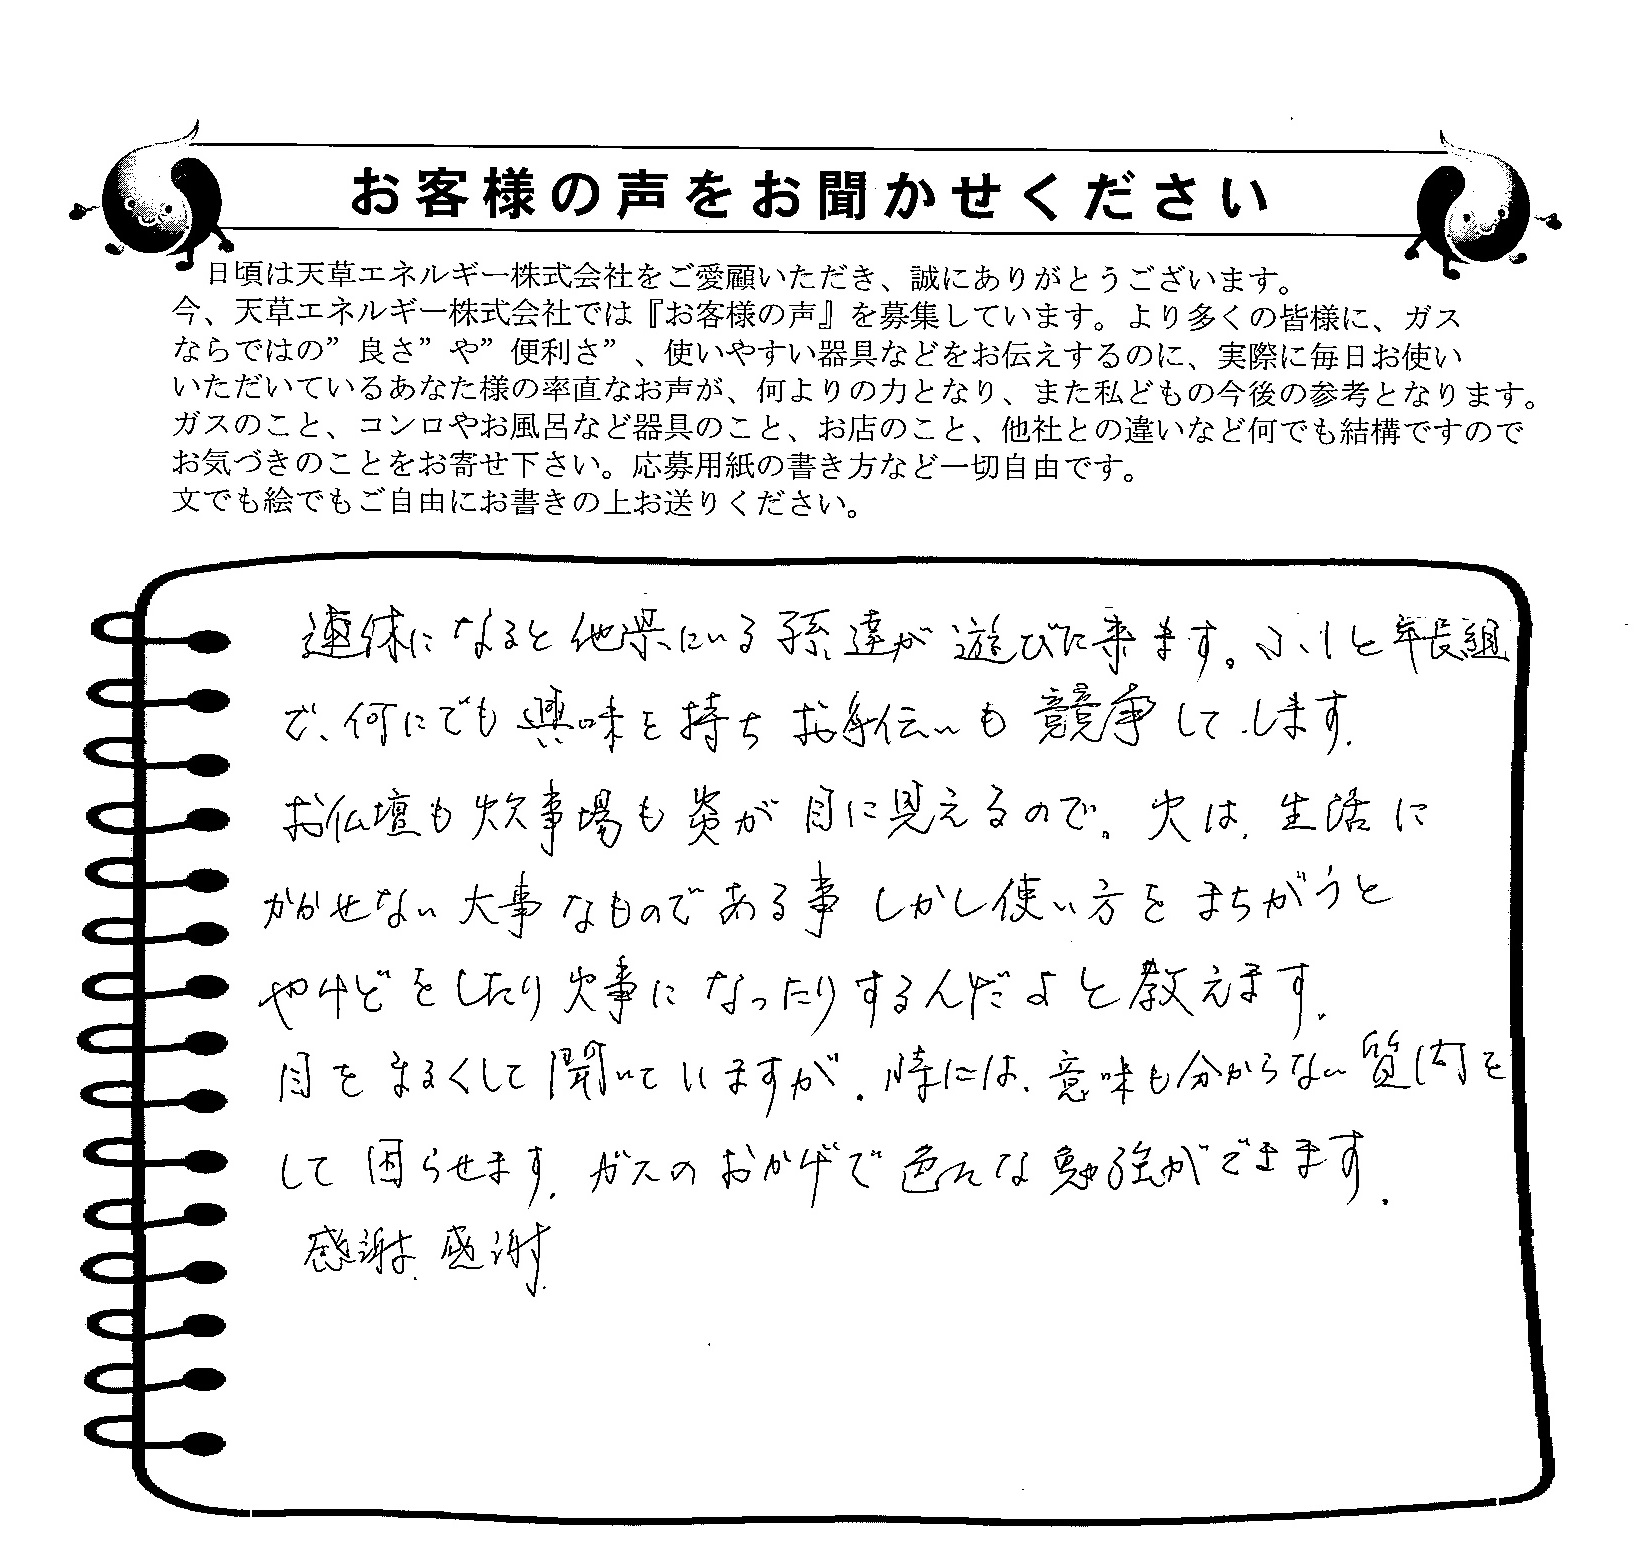 お客様の声をお聞かせください
日頃は天草エネルギー株式会社をご愛顧いただき、誠にありがとうございます。
今、天草エネルギー株式会社では『お客様の声』を募集しています。より多くの皆様に、ガス
ならではの”良さ”や”便利さ”、使いやすい器具などをお伝えするのに、実際に毎日お使い
いただいているあなた様の率直なお声が、何よりの力となり、また私どもの今後の参考となります。
ガスのこと、コンロやお風呂など器具のこと、お店のこと、他社との違いなど何でも結構ですので
お気づきのことをお寄せ下さい。応募用紙の書き方など一切自由です。
文でも絵でもご自由にお書きの上お送りください。
連休になると他県にいる孫達が遊びに来ます。小1と年長組
で、何にでも興味を持ちお手伝いも競争してします.
お仏壇も炊事場も炎が目に見えるので。火は、生活に
かかせない大事なものである事 しかし使い方をまちがうと
やけどをしたり火事になったりするんだよと教えます.
目をまるくして聞いていますが.時には、意味も分からない質問を
して困らせます.ガスのおかげで色々な勉強ができます.
感謝.感謝.